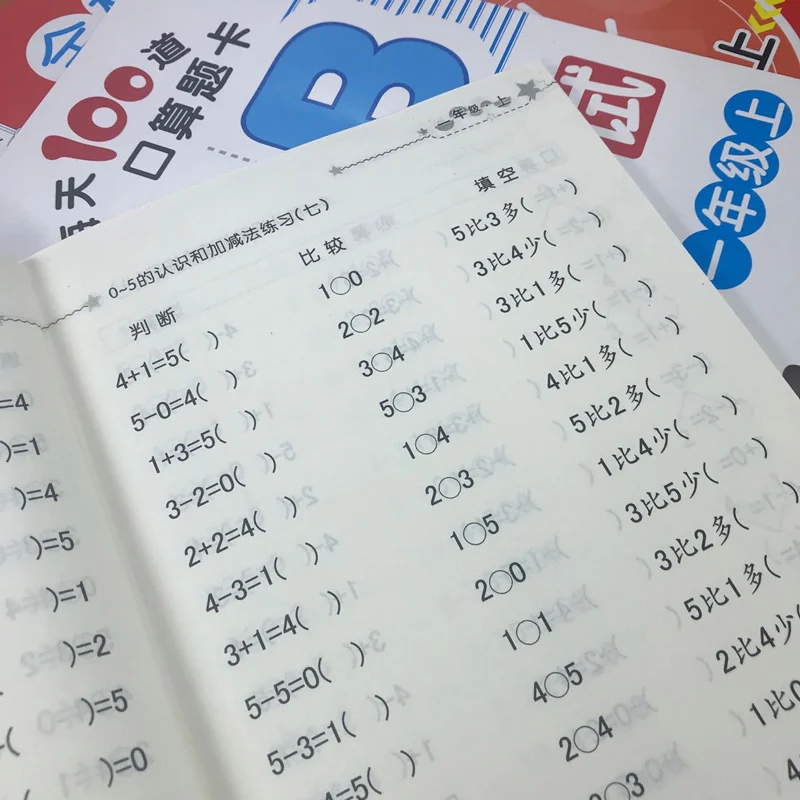 天100道
口算题卡
B
试
上
一年级上
一年级上
0~5的认识和加减法练习(七)
判断
比较
填空
4+1=5( )
5-0=4( )
1+3=5( )
3-2=0( )
2+2=4( )
4-3=1( )
3+1=4( )
5-5=0( )
5-3=1( )
4=5( )
1○0
2○2
3○4
5○3
1○4
2○3
1○5
2○0
1○1
4○5
2○4
○3
5比3多( )
3比4少( )
3比1多( )
1比5少( )
4比1多( )
5比2多( )
1比4少( )
3比5少( )
3比2多( )
5比1多( )
2比4少
1比0
4
=4
)=1
)=4
)=5
)=1
)=2
)=5
)=0